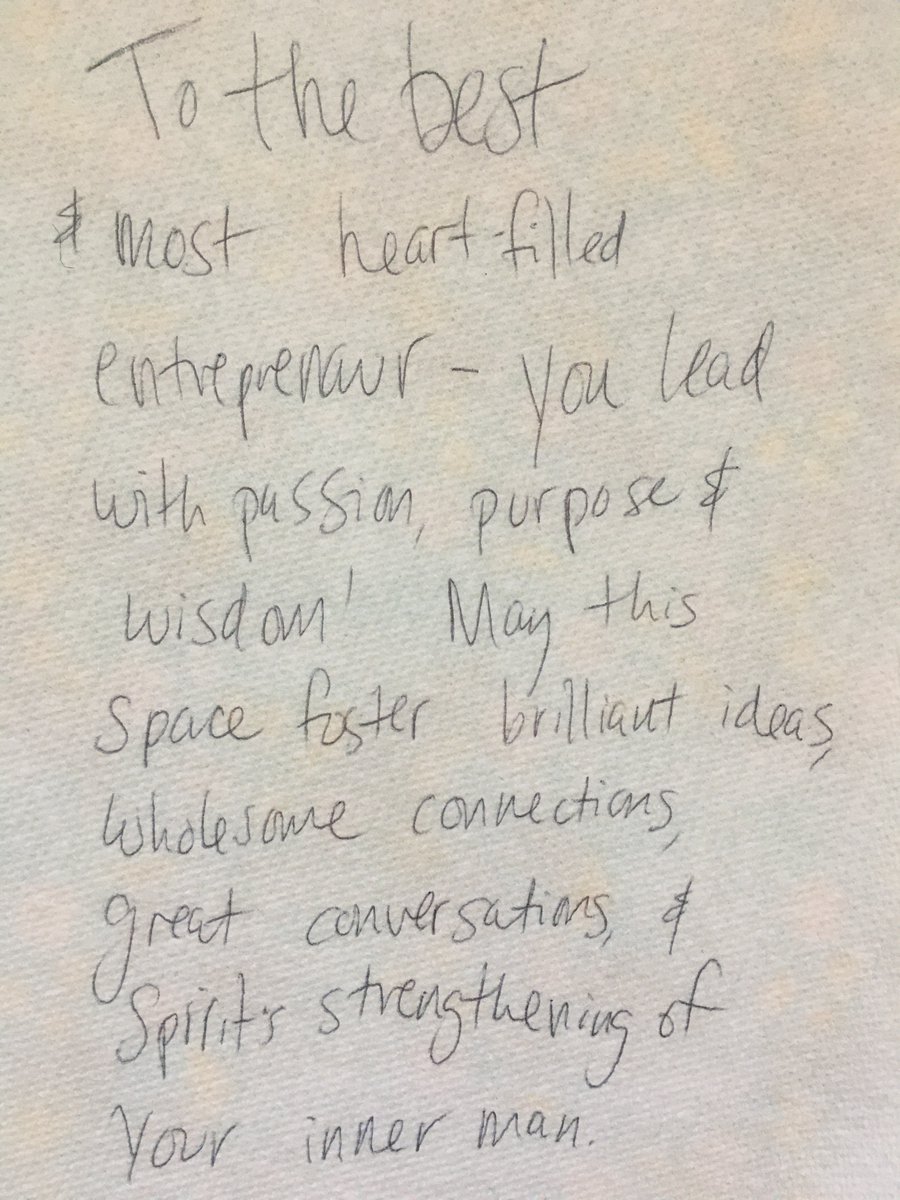 To the best
& most heart-filled
entreprenaur - you lead
with passion, purpose &
wisdom! May this
space foster brilliant ideas,
wholesome connections,
great conversations, &
Spirit's strengthening of
your inner man.